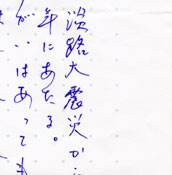 淡路大震災か
年にあたる。
がいはあっても